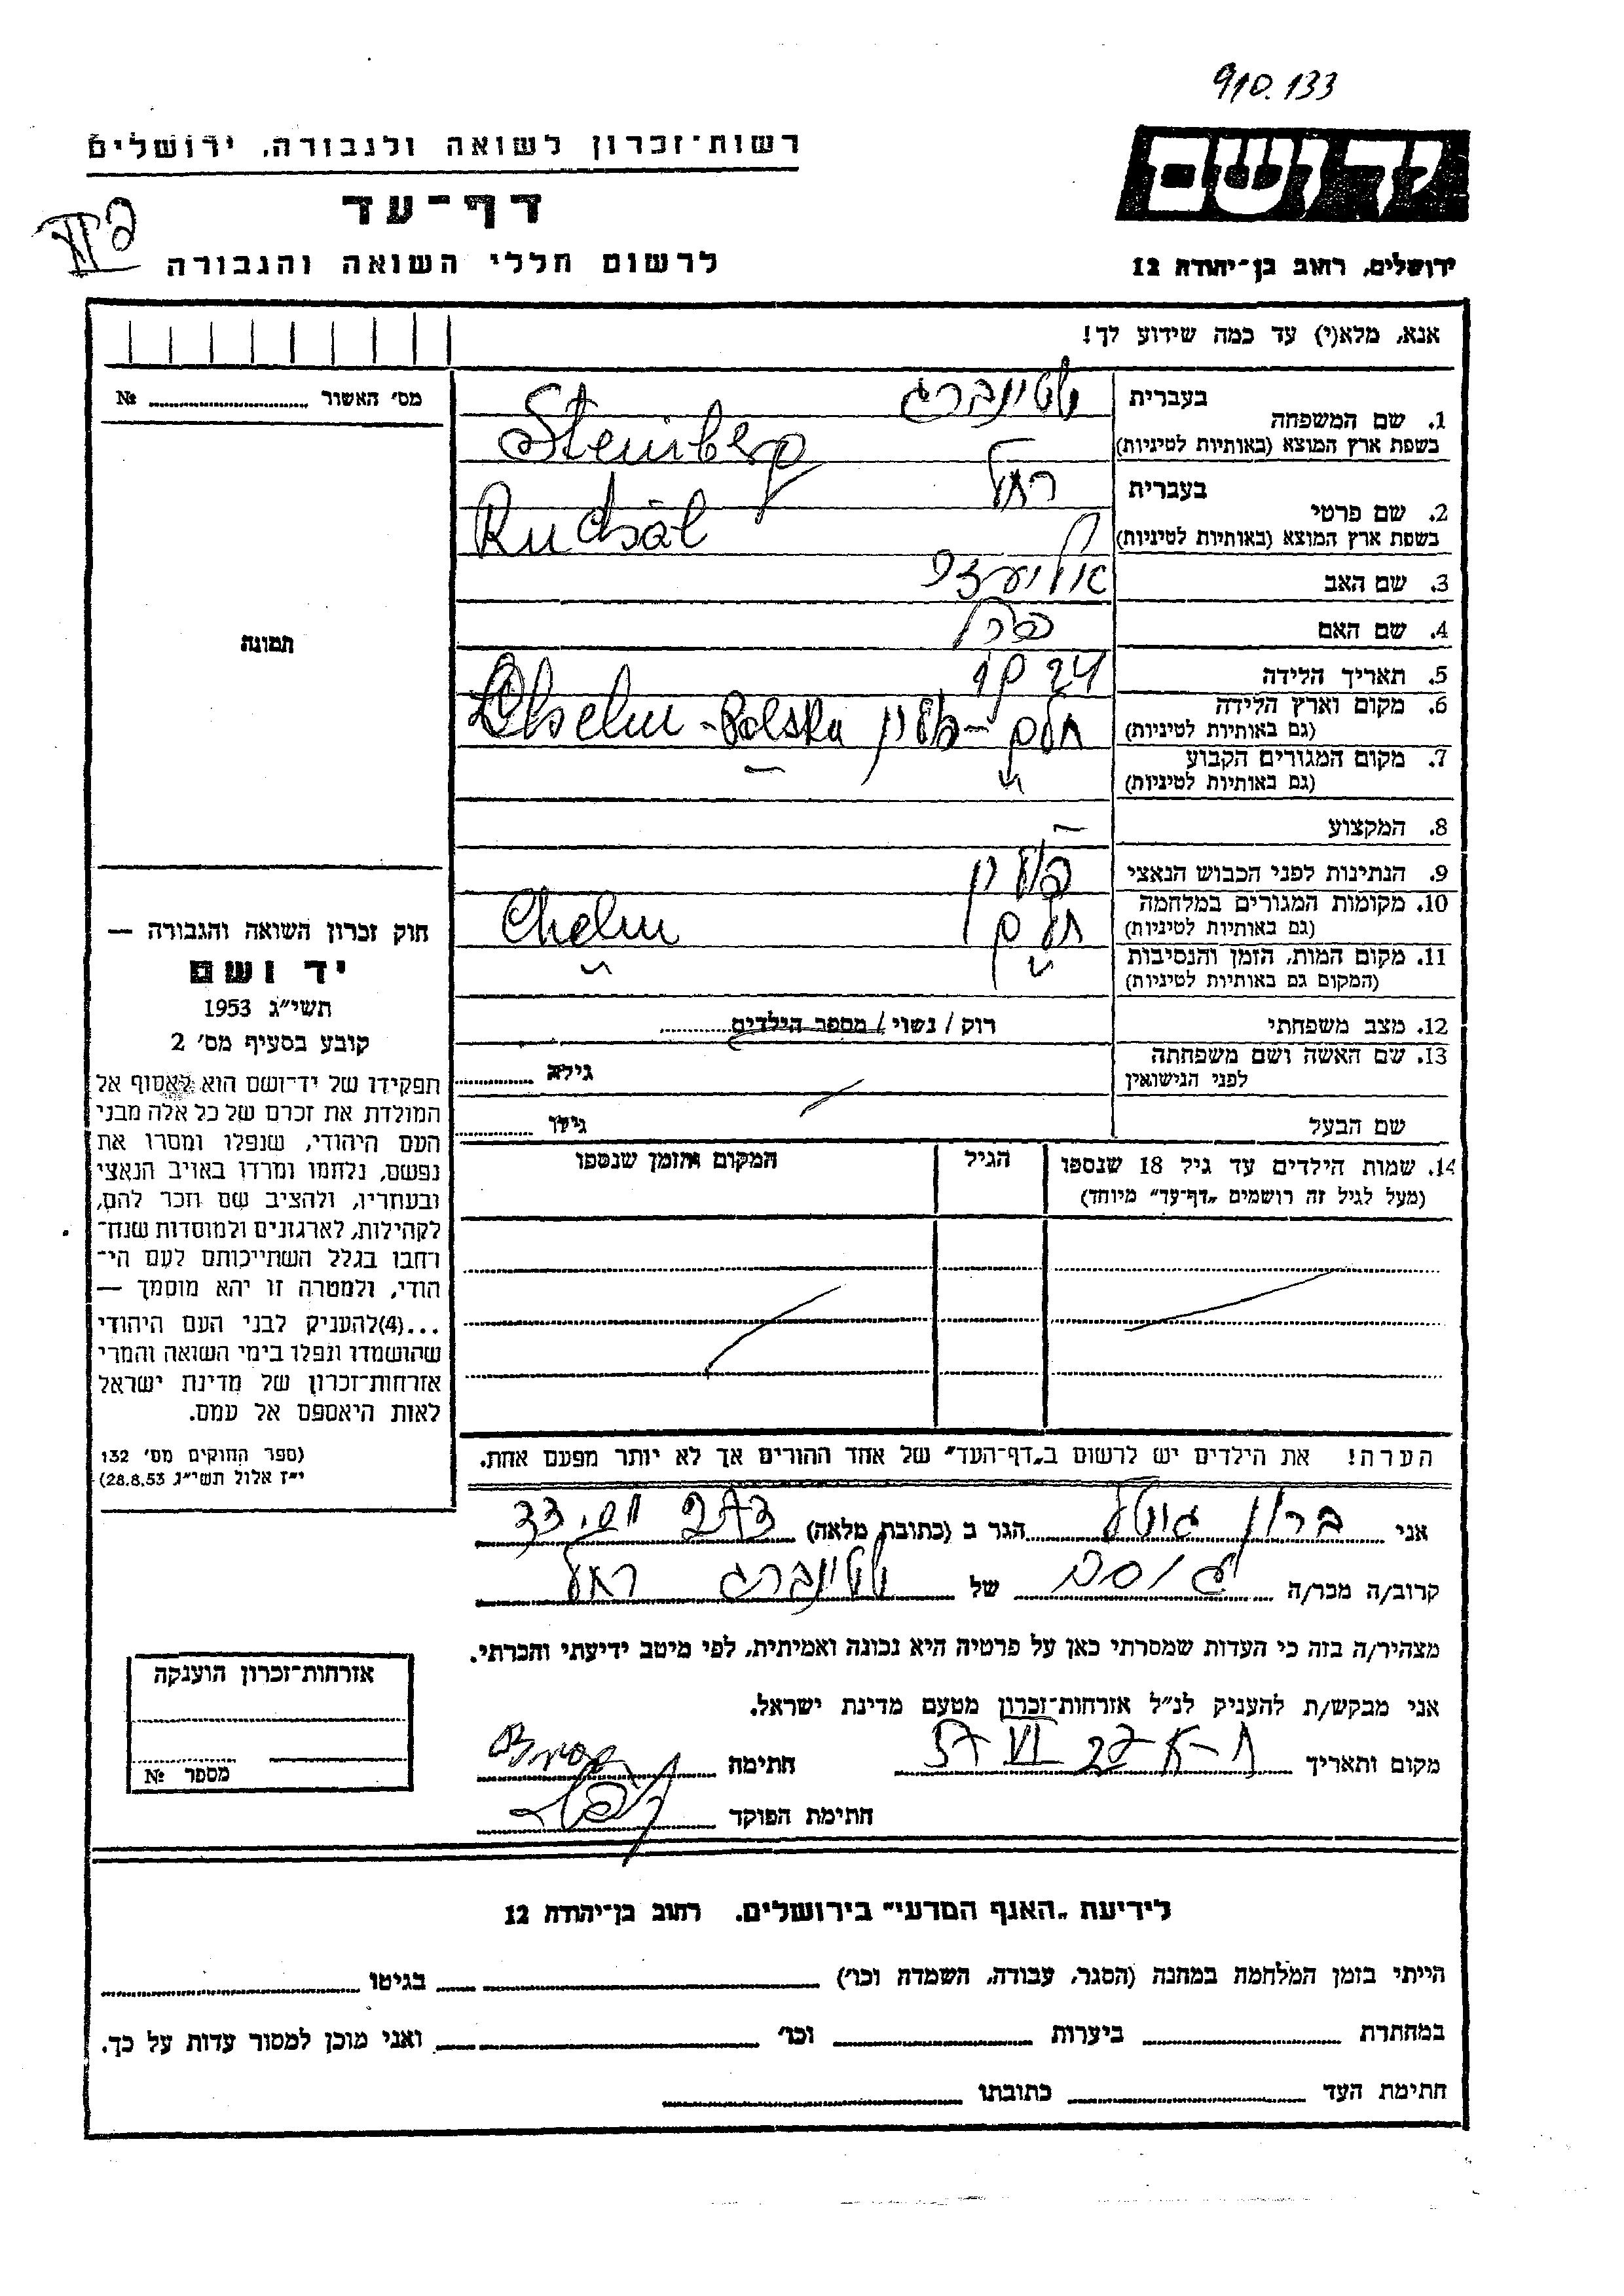 910.133
יד ושם
רשות־זכרון לשואה ולגבורה, ירושלים
דף־עד
לרשום חללי השואה והגבורה
ירושלים, רחוב בן־יהודה 12
אנא, מלא(י) עד כמה שידוע לך!
מס׳ האשור № 
תמונה
1. שם המשפחה בעברית שטיינברג
בשפת ארץ המוצא (באותיות לטיניות) Steinberg
2. שם פרטי בעברית רחל
בשפת ארץ המוצא (באותיות לטיניות)
3. שם האב
4. שם האם
5. תאריך הלידה
6. מקום וארץ הלידה חלם - פולין Chelm - Polska
(גם באותיות לטיניות)
7. מקום המגורים הקבוע
(גם באותיות לטיניות)
8. המקצוע —
9. הנתינות לפני הכבוש הנאצי פולין
10. מקומות המגורים במלחמה חלם Chelm
(גם באותיות לטיניות)
11. מקום המות, הזמן והנסיבות
(המקום גם באותיות לטיניות)
12. מצב משפחתי רוק / נשוי / מספר הילדים
13. שם האשה ושם משפחתה גילה
לפני הנישואין
שם הבעל גילו
14. שמות הילדים עד גיל 18 שנספו הגיל המקום והזמן שנספו
(מעל לגיל זה רושמים „דף־עד״ מיוחד)
הערה! את הילדים יש לרשום ב„דף־העד״ של אחד ההורים אך לא יותר מפעם אחת.
חוק זכרון השואה והגבורה —
יד ושם
תשי״ג 1953
קובע בסעיף מס׳ 2
תפקידו של יד־ושם הוא לאסוף אל
המולדת את זכרם של כל אלה מבני
העם היהודי, שנפלו ומסרו את
נפשם, נלחמו ומרדו באויב הנאצי
ובעוזריו, ולהציב שם וזכר להם,
לקהילות, לארגונים ולמוסדות שנח־
רבו בגלל השתייכותם לעם הי־
הודי, ולמטרה זו יהא מוסמך —
...(4)להעניק לבני העם היהודי
שהושמדו ונפלו בימי השואה והמרי
אזרחות־זכרון של מדינת ישראל
לאות היאספם אל עמם.
(ספר החוקים מס׳ 132
י״ז אלול תשי״ג 28.8.53)
אני הגר ב (כתובת מלאה)
קרוב/ה מכר/ה של שטיינברג רחל
מצהיר/ה בזה כי העדות שמסרתי כאן על פרטיה היא נכונה ואמיתית, לפי מיטב ידיעתי והכרתי.
אני מבקש/ת להעניק לנ״ל אזרחות־זכרון מטעם מדינת ישראל.
מקום ותאריך ת-א 27 VI 57 חתימה
חתימת הפוקד
אזרחות־זכרון הוענקה
מספר №
לידיעת „האגף המדעי״ בירושלים. רחוב בן־יהודה 12
הייתי בזמן המלחמה במחנה (הסגר, עבודה, השמדה וכו׳) בגיטו
במחתרת ביערות וכו׳ ואני מוכן למסור עדות על כך.
חתימת העד כתובתו